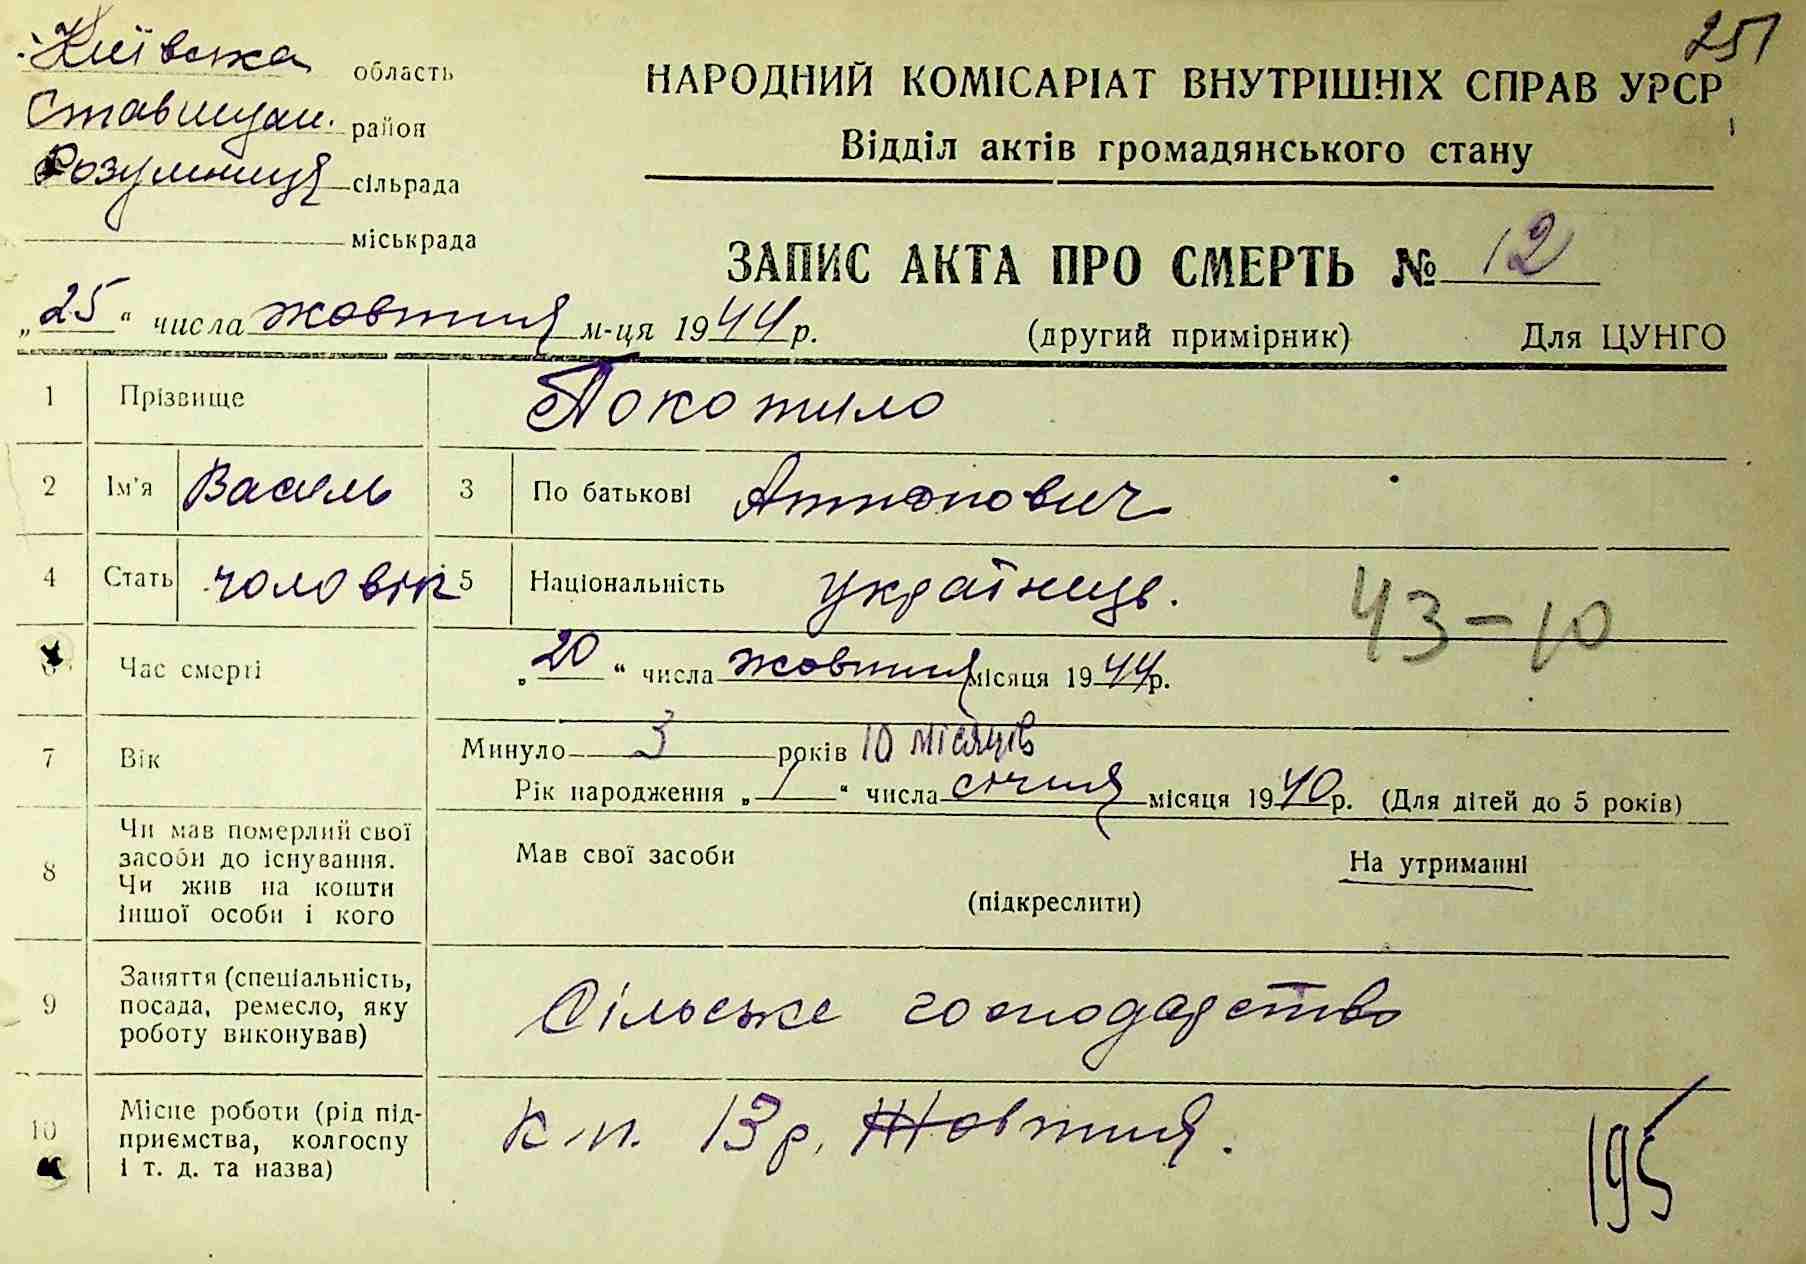 251
Київська область
Ставищан. район
Розумниця сільрада
міськрада
НАРОДНИЙ КОМІСАРІАТ ВНУТРІШНІХ СПРАВ УРСР
Відділ актів громадянського стану
ЗАПИС АКТА ПРО СМЕРТЬ № 12
„25“ числа жовтня м-ця 1944 р. (другий примірник) Для ЦУНГО
1 Прізвище Покотило
2 Ім'я Василь 3 По батькові Антонович
4 Стать чоловік 5 Національність українець.
43-10
6 Час смерті „20“ числа жовтня місяця 1944 р.
7 Вік Минуло 3 років 10 місяців
Рік народження „1“ числа січня місяця 1940 р. (Для дітей до 5 років)
8 Чи мав померлий свої засоби до існування. Чи жив на кошти іншої особи і кого
Мав свої засоби На утриманні
(підкреслити)
9 Заняття (спеціальність, посада, ремесло, яку роботу виконував) Сільське господарство
10 Місце роботи (рід підприємства, колгоспу і т. д. та назва) к-п. 13 р. Жовтня.
195